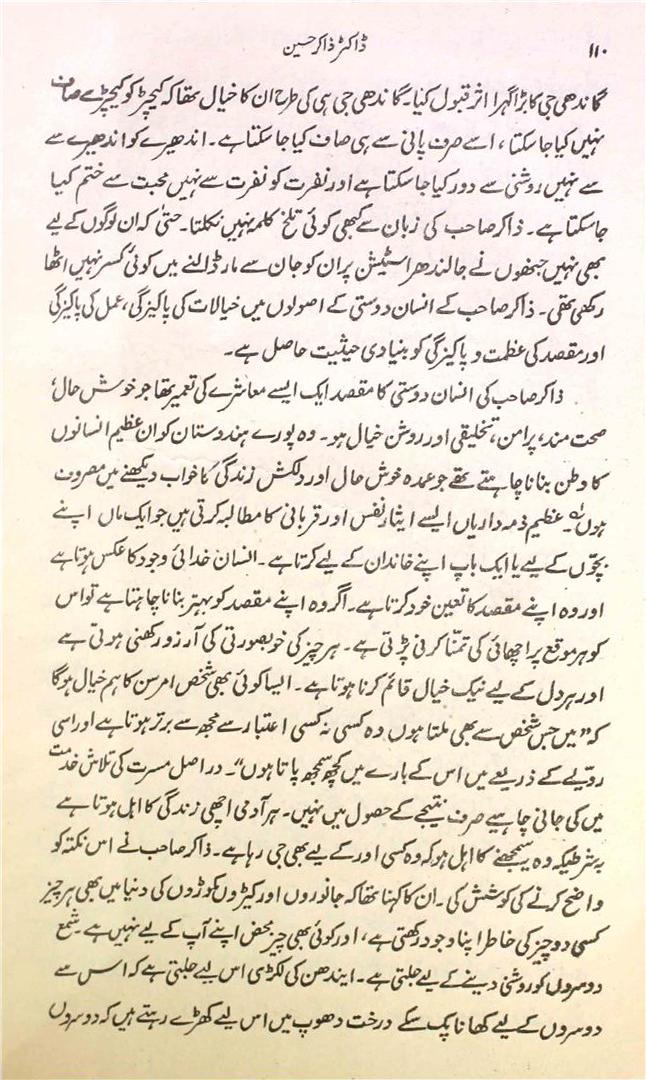 ۱۱۰
ڈاکٹر ذاکر حسین
گاندھی جی کا بڑا گہرا اثر قبول کیا۔ گاندھی جی ہی کی طرح ان کا خیال تھا کہ کیچڑ کو کیچڑ سے صاف
نہیں کیا جا سکتا، اسے صرف پانی سے ہی صاف کیا جا سکتا ہے۔ اندھیرے کو اندھیرے سے
سے نہیں روشنی سے دور کیا جا سکتا ہے اور نفرت کو نفرت سے نہیں محبت سے ختم کیا
جا سکتا ہے۔ ذاکر صاحب کی زبان سے کبھی کوئی تلخ کلمہ نہیں نکلتا۔ حتیٰ کہ ان لوگوں کے لیے
بھی نہیں جنھوں نے جالندھر اسٹیشن پر ان کو جان سے مار ڈالنے میں کوئی کسر نہیں اٹھا
رکھی تھی۔ ذاکر صاحب کے انسان دوستی کے اصولوں میں خیالات کی پاکیزگی، عمل کی پاکیزگی
اور مقصد کی عظمت و پاکیزگی کو بنیادی حیثیت حاصل ہے۔
ذاکر صاحب کی انسان دوستی کا مقصد ایک ایسے معاشرے کی تعمیر تھا جو خوش حال،
صحت مند، پرامن، تخلیقی اور روشن خیال ہو۔ وہ پورے ہندوستان کو ان عظیم انسانوں
کا وطن بنانا چاہتے تھے جو عمدہ خوش حال اور دلکش زندگی کا خواب دیکھنے میں مصروف
ہوں۔ عظیم ذمہ داریاں ایسے ایثار نفس اور قربانی کا مطالبہ کرتی ہیں جو ایک ماں اپنے
بچّوں کے لیے یا ایک باپ اپنے خاندان کے لیے کرتا ہے۔ انسان خدائی وجود کا عکس ہوتا ہے
اور وہ اپنے مقصد کا تعین خود کرتا ہے۔ اگر وہ اپنے مقصد کو بہتر بنانا چاہتا ہے تو اس
کو ہر موقع پر اچھائی کی تمنّا کرنی پڑتی ہے۔ ہر چیز کی خوبصورتی کی آرزو رکھنی ہوتی ہے
اور ہر دل کے لیے نیک خیال قائم کرنا ہوتا ہے۔ ایسا کوئی بھی شخص امرسن کا ہم خیال ہوگا
کہ ”میں جس شخص سے بھی ملتا ہوں وہ کسی نہ کسی اعتبار سے مجھ سے برتر ہوتا ہے اور اسی
رویّے کے ذریعے میں اس کے بارے میں کچھ سمجھ پاتا ہوں“۔ در اصل مسرت کی تلاش خدمت
میں کی جانی چاہیے صرف نتیجے کے حصول میں نہیں۔ ہر آدمی اچھی زندگی کا اہل ہوتا ہے
بہ شرطیکہ وہ یہ سمجھنے کا اہل ہو کہ وہ کسی اور کے لیے بھی جی رہا ہے۔ ذاکر صاحب نے اس نکتہ کو
واضح کرنے کی کوشش کی۔ ان کا کہنا تھا کہ جانوروں اور کیڑوں مکوڑوں کی دنیا میں بھی ہر چیز
کسی دو چیز کی خاطر اپنا وجود رکھتی ہے، اور کوئی بھی چیز محض اپنے آپ کے لیے نہیں ہے۔ شمع
دوسروں کو روشنی دینے کے لیے جلتی ہے۔ ایندھن کی لکڑی اس لیے جلتی ہے کہ اس سے
دوسروں کے لیے کھانا پک سکے درخت دھوپ میں اس لیے کھڑے رہتے ہیں کہ دوسروں